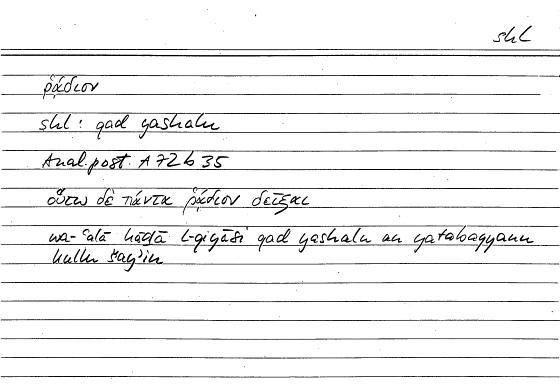 shl
ῥᾴδιον
shl : qad yashalu
Anal. post. A 72 b 35
οὕτω δὲ πάντα ῥᾴδιον δεῖξαι
wa-ʿalā hāḏā l-qiyāsi qad yashalu an yatabayyanu
kullu šayʾin